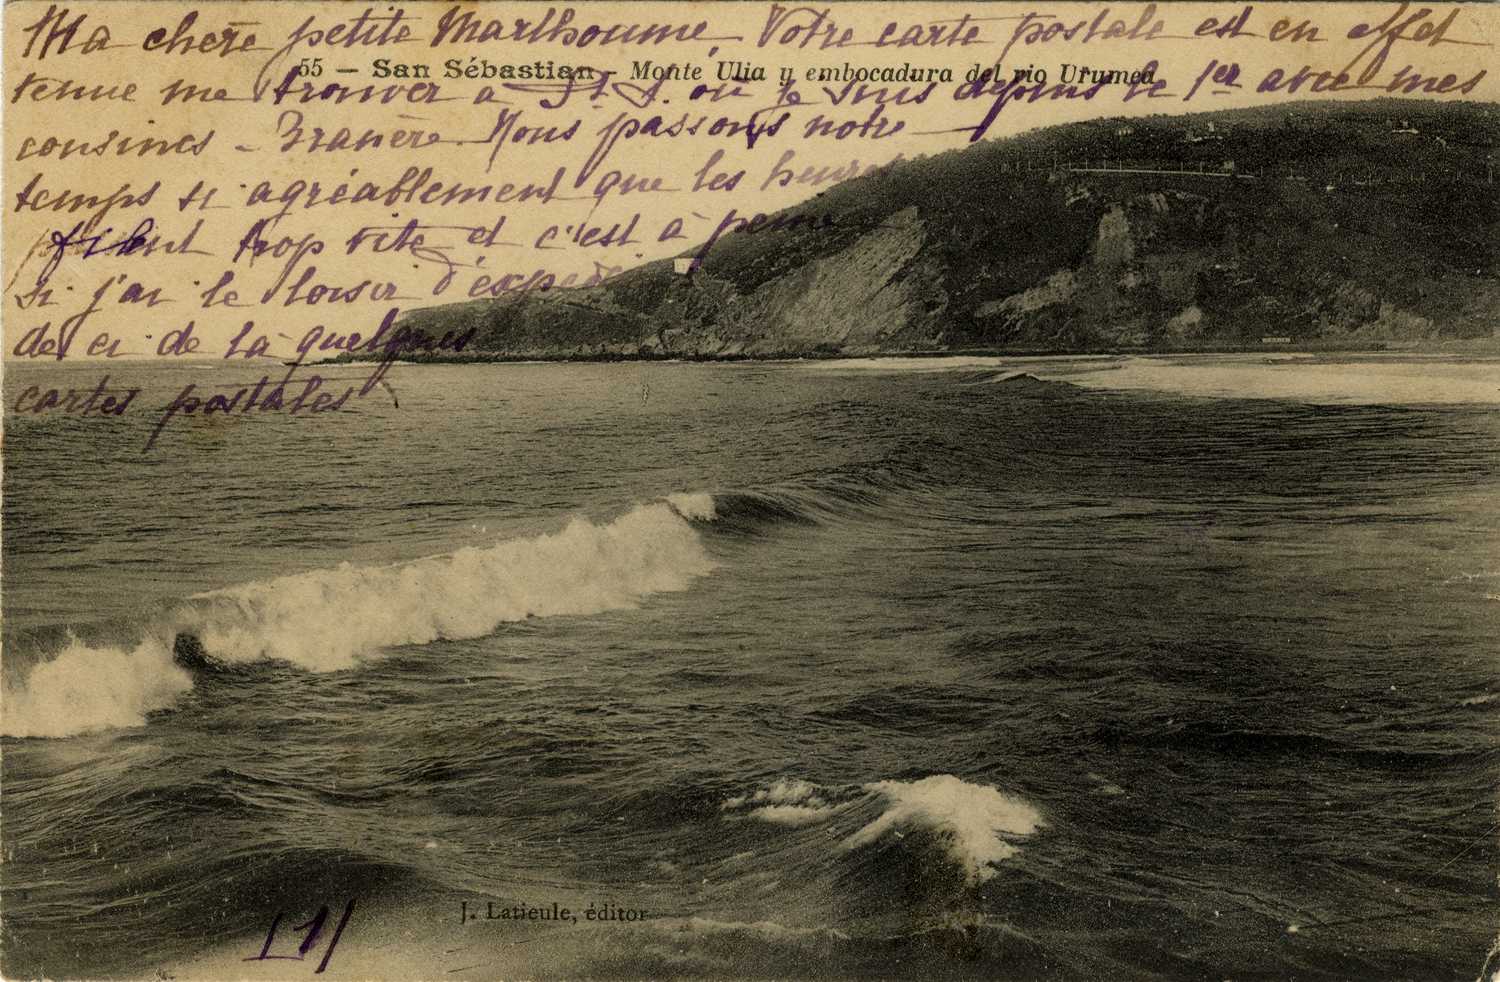 Ma chère petite Marthoune, Votre carte postale est en effet
55 – San Sébastian – Monte Ulia y embocadura del rio Urumea
venue me trouver à St S. où je suis depuis le 1er avec mes
cousines - Branère. Nous passons notre
temps si agréablement que les heures
filent trop vite et c'est à peine
si j'ai le loisir d'expédier
de ci de là quelques
cartes postales
J. Latieule, éditor
(1)